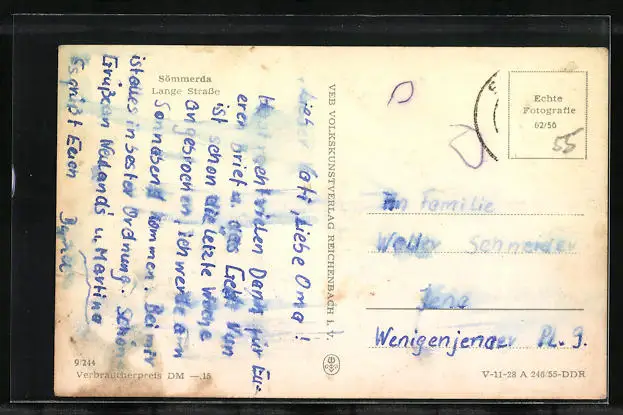 Sömmerda
Lange Straße
Lieber Vati, Liebe Oma!
Habt recht vielen Dank für Eu-
eren Brief u. das Geld. Nun
ist schon die letzte Woche
angebrochen, ich werde am
Sonnabend kommen. Bei mir
ist alles in bester Ordnung. Schöne
Grüße an u. Martina
Es grüßt Euch
9/244
Verbraucherpreis DM —.15
VEB VOLKSKUNSTVERLAG REICHENBACH i. V.
Echte
Fotografie
62/56
55
An Familie
Schneider
Jena
Wenigenjenaer Pl. 9.
V-11-28 A 246/55-DDR